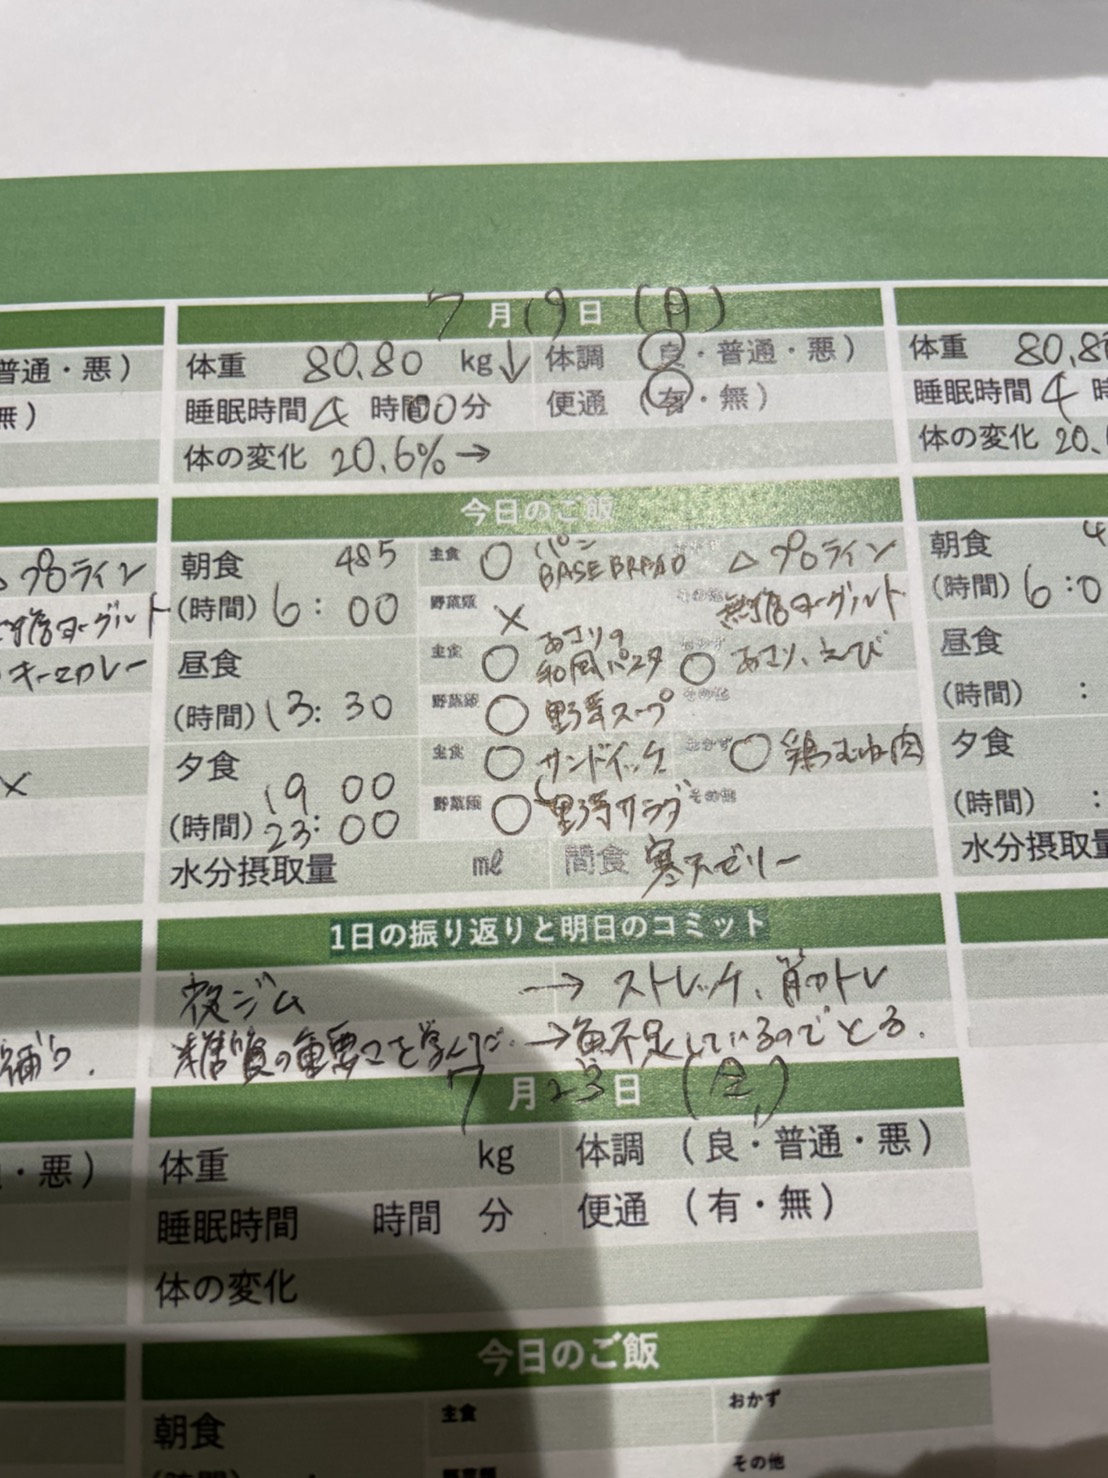 7月19日(月)
普通・悪)
体重 80.80 kg↓ 体調 (良・普通・悪)
体重 80.8
無)
睡眠時間 4時間00分 便通 (有・無)
睡眠時間 4 時
体の変化 20.6%→
体の変化 20.
今日のご飯
△プロテイン
朝食 485 主食 ○ パン BASE BREAD △プロテイン
朝食 4
ヨーグルト
(時間) 6:00 野菜類 × その他 無糖ヨーグルト
(時間) 6:0
キーマカレー
昼食 主食 ○ あさりの和風パスタ ○ あさり、えび
昼食
(時間) 13:30 野菜類 ○ 野菜スープ その他
(時間) :
×
夕食 19 00 主食 ○ サンドイッチ おかず ○ 鶏むね肉
夕食
(時間) 23:00 野菜類 ○ 野菜サラダ その他
(時間) :
水分摂取量 ml 間食 寒天ゼリー
水分摂取量
1日の振り返りと明日のコミット
夜ジム → ストレッチ、筋トレ
補う.
糖質の重要さを学んだ. →魚不足しているのでとる.
7月23日(金)
・悪)
体重 kg 体調 (良・普通・悪)
睡眠時間 時間 分 便通 (有・無)
体の変化
今日のご飯
朝食 主食 おかず
(時間) 野菜類 その他